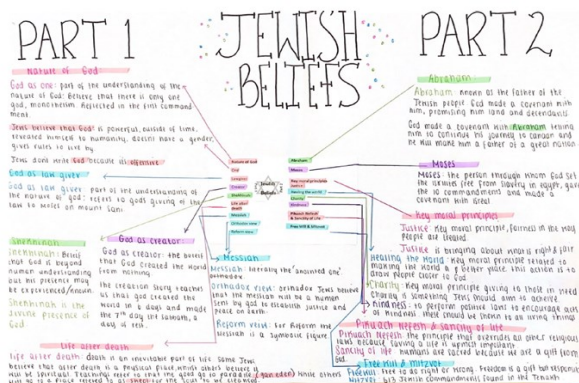 PART 1
JEWISH
BELIEFS
PART 2
Nature of God
God as one: part of the understanding of the
nature of God: Believe that there is only one
god, monotheism. Reflected in the first command
ment.
Jews believe that God is powerful, outside of time,
revealed himself to humanity, doesnt have a gender,
gives rules to live by
Jews dont write God because its offensive
God as law giver
God as law giver: part of the understanding of
the nature of god: refers to gods giving of the
law to moses on mount sinai
Shekhinah
Shekhinah: Belief
that God is beyond
human understanding
but his presence may
be experienced/known.
Shekhinah is the
divine presence of
God
God as creator
God as creator: the belief
that God created the world
from nothing
The creation story teaches
us that god created the
world in 6 days and made
the 7th day (et Sabbath, a
day of rest.
Life after death
Life after death: death is an inevitable part of life. Some Jews
believe that after death is a physical place, whilst others believe it
Nature of God
Creator
Shekhinah
Life after
death
Messiah
Orthodox view
Reform view
Jewish
Beliefs
Abraham
Moses
Key moral principles
Justice
Healing the world
Charity
Kindness
Pikuach Nefesh
& Sanctity of life
Free will & Mitzvot
Messiah
Messiah: literally the 'anointed one'
Orthodox view: orthodox Jews believe
that the messiah will be a human
sent by god to establish justice and
peace on earth.
Reform view: For Reform the
Messiah is a symbolic figure
Abraham
Abraham: known as the father of the
Jewish people God made a covenant with
him, promising him land and descendants.
God made a covenant with Abraham telling
him to continue his journey to canaan and
he will make him a father of a great nation.
Moses
Moses: the person through whom God set
the israelites free from slavery in egypt, gave
the 10 commandments and made a
covenant with israel
Key moral principles
Justice: key moral principle, fairness in the way
people are treated
Justice is bringing about what is right & fair
Healing the World: key moral principle related to
making the world a better place. This action is to
draw people closer to God
Charity: Key moral principle giving to those in need
Charity is something Jews should aim to achieve
Kindness: to perform positive sons to encourage acts
of kindness. they should be shown to all living things
Pikuach Nefesh & sanctity of life
Pikuach Nefesh: the principle that overrides all other religious
laws because saving a life is upmost important
Sanctity of life: humans are sacred because we are a gift from
God.
Free Will & Mitzvot